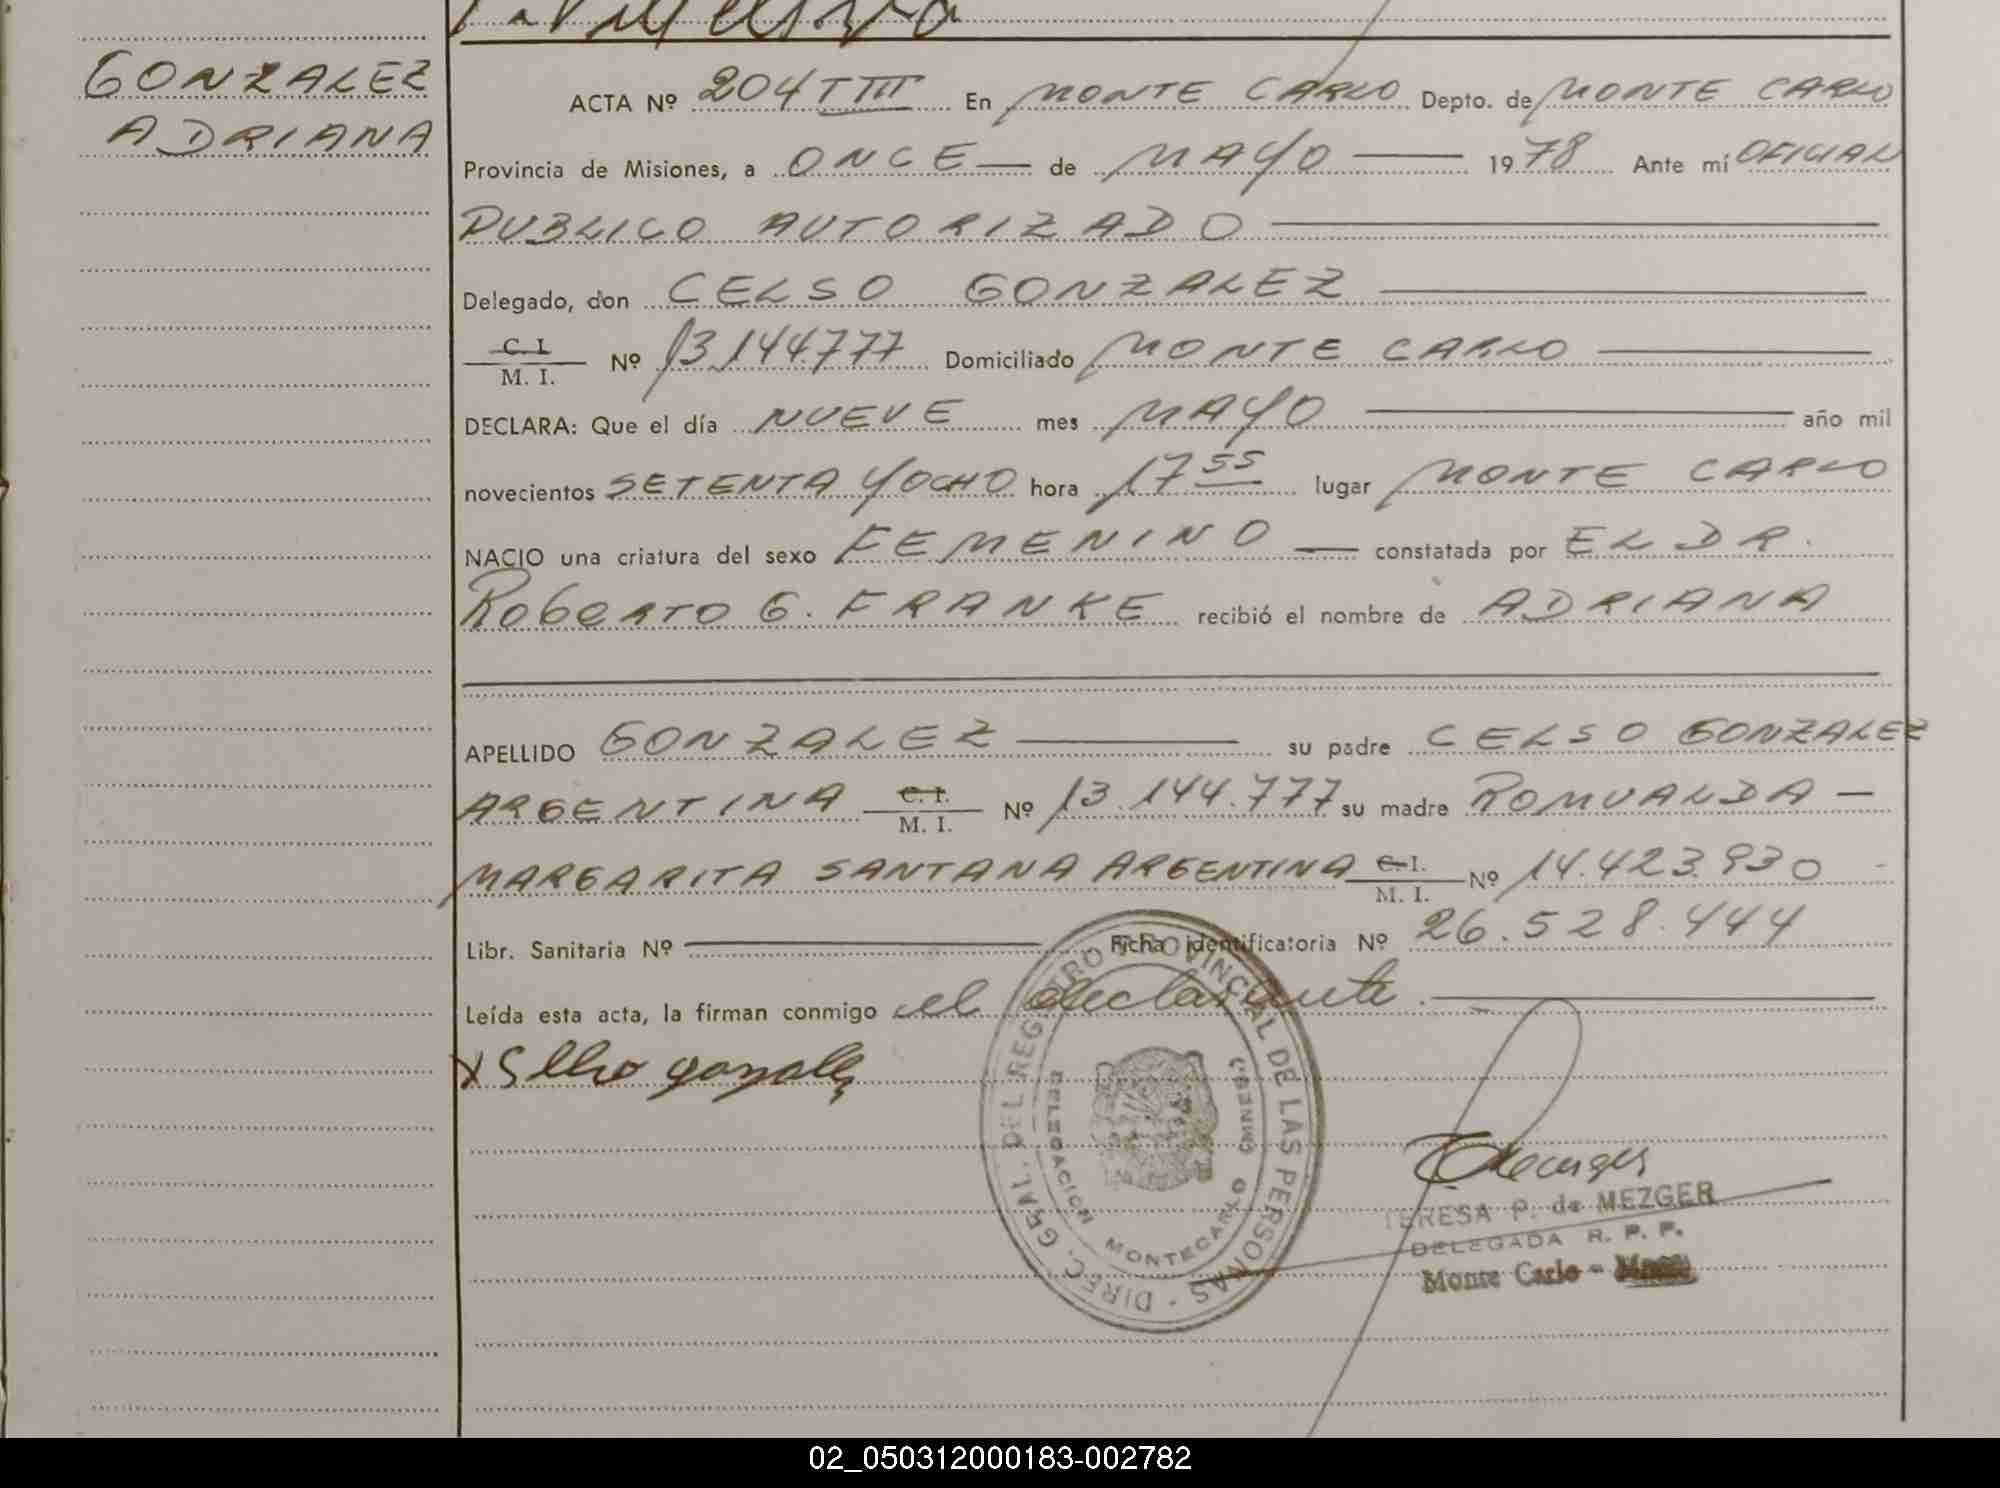 GONZALEZ
ADRIANA
ACTA Nº 204 T III En MONTE CARLO Depto. de MONTE CARLO
Provincia de Misiones, a ONCE — de MAYO — 1978 Ante mí OFICIAL
PUBLICO AUTORIZADO —
Delegado, don CELSO GONZALEZ —
C. I. / M. I. Nº 13.144.777 Domiciliado MONTE CARLO —
DECLARA: Que el día NUEVE mes MAYO — año mil
novecientos SETENTA Y OCHO hora 17 55 lugar MONTE CARLO
NACIO una criatura del sexo FEMENINO — constatada por EL DR.
ROBERTO G. FRANKE recibió el nombre de ADRIANA
APELLIDO GONZALEZ — su padre CELSO GONZALEZ
ARGENTINA C. I. / M. I. Nº 13.144.777 su madre ROMUALDA —
MARGARITA SANTANA ARGENTINA C. I. / M. I. Nº 14.423.930
Libr. Sanitaria Nº — Ficha identificatoria Nº 26.528.444
Leída esta acta, la firman conmigo el declarante. —
DIREC. GRAL. DEL REGISTRO PROVINCIAL DE LAS PERSONAS
DELEGACION MONTECARLO
TERESA P. de MEZGER
DELEGADA R. P. P.
Monte Carlo -
02_050312000183-002782